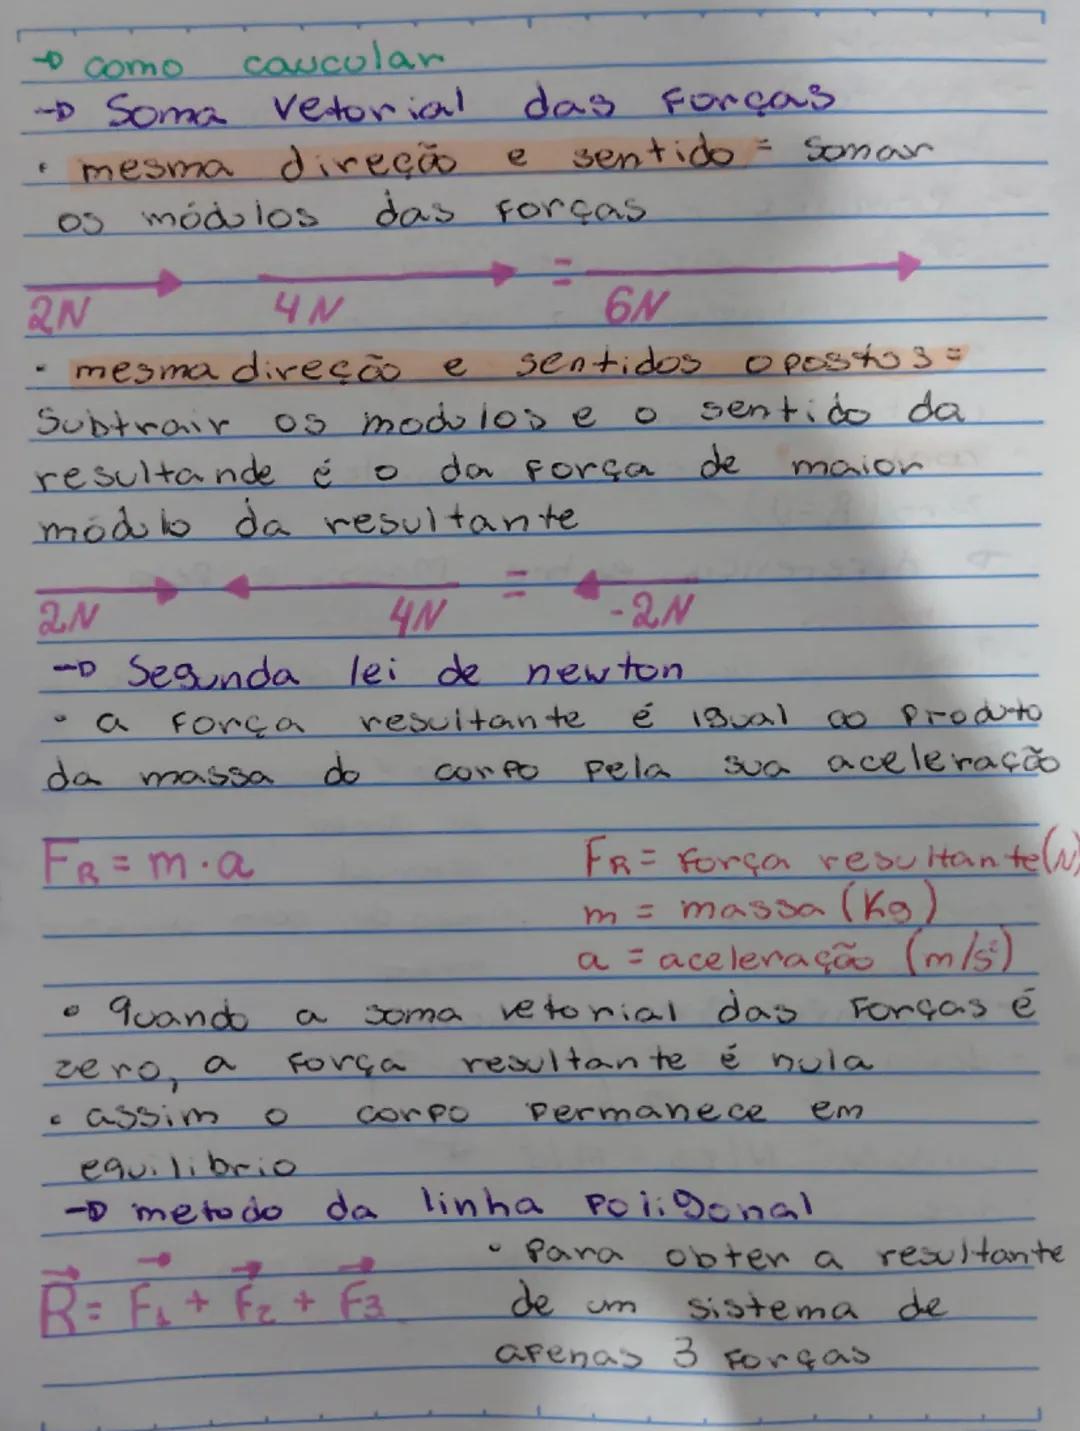 → como caucular
→ Soma vetorial das forças
• mesma direção e sentido = somar
os módulos das forças
2N 4N = 6N
• mesma direção e sentidos opostos =
subtrair os modulos e o sentido da
resultande é o da força de maior
módulo da resultante
2N 4N = -2N
→ Segunda lei de newton
• a força resultante é igual ao produto
da massa do corpo pela sua aceleração
FR = m · a
FR = força resultante (N)
m = massa (Kg)
a = aceleração (m/s²)
• quando a soma vetorial das forças é
zero, a força resultante é nula
• assim o corpo permanece em
equilibrio
→ metodo da linha poligonal
R⃗ = F⃗1 + F⃗2 + F⃗3
• para obter a resultante
de um sistema de
apenas 3 forças